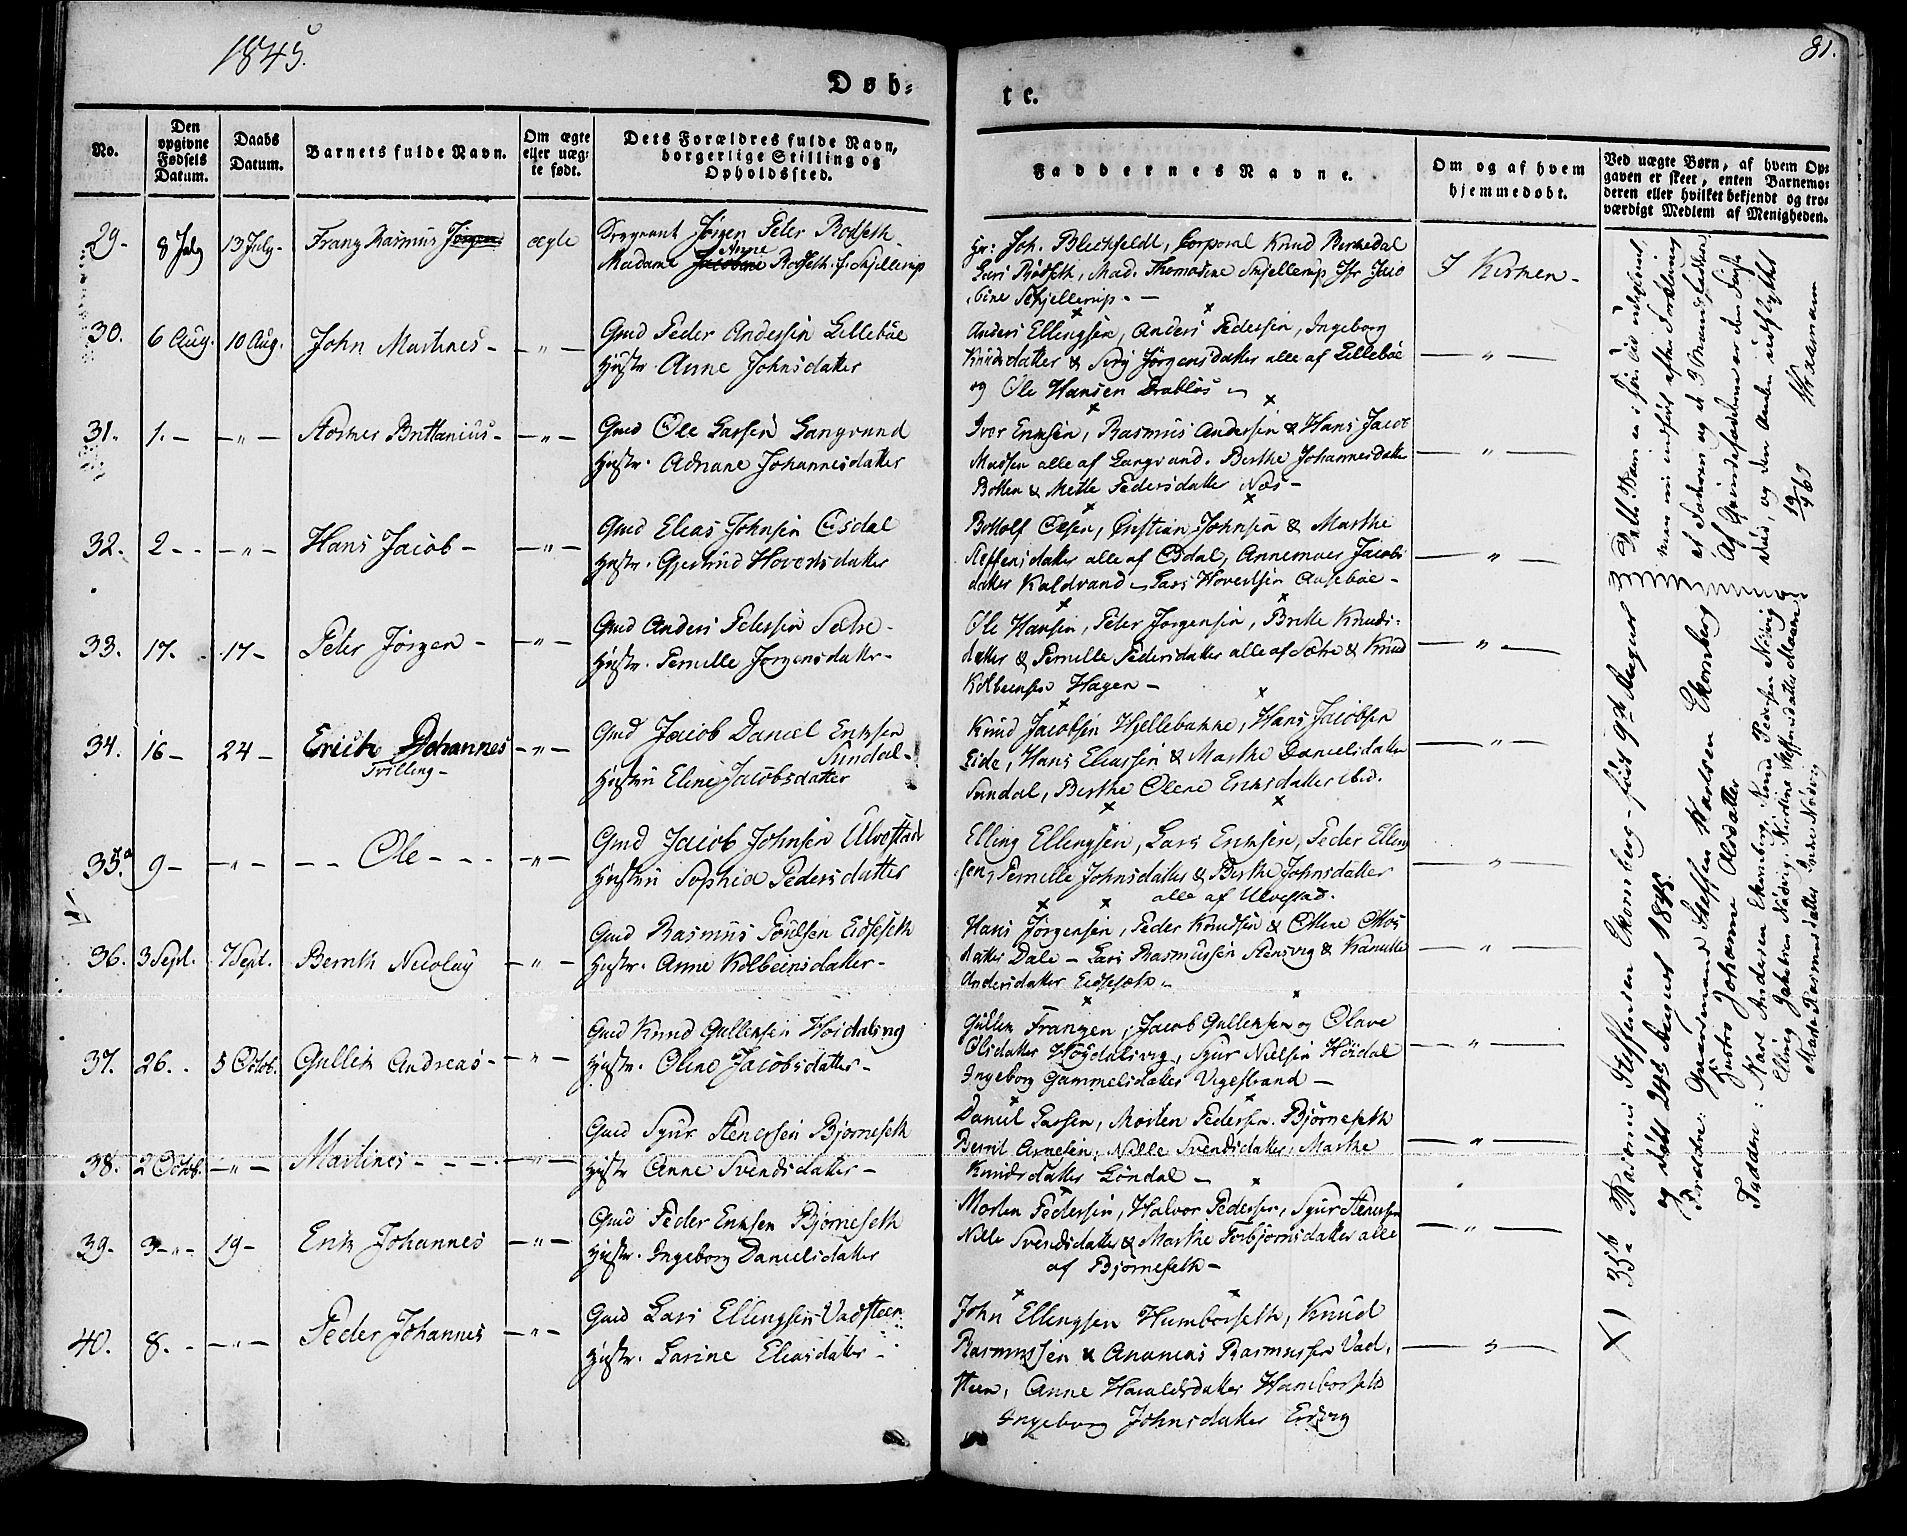 1845.
81.
Døb-
te.
No.
Den opgivne Fødsels Datum.
Daabs Datum.
Barnets fulde Navn.
Om ægte eller uægte født.
Dets Forældres fulde Navn, borgerlige Stilling og Opholdssted.
Faddernes Navne.
Om og af hvem hjemmedøbt.
Ved uægte Børn, af hvem Opgaven er skeet, enten Barnemoderen eller hvilket bekjendt og troværdigt Medlem af Menigheden.
29. 8 July 13 July Franz Rasmus Jørgen ægte Jørgen Peter Rodseth
Madame Jacobine Anne Rodseth f. Skjellerup
Hr: Joh. Blechfeldt, Corporal Knud Birkedal
Lars Rødseth, Mad. Thomasine Skjellerup Jfr Jaco
bine Skjellerup. —
I Kirken -
30. 6 Aug. 10 Aug. John Martines - — " — Gmd Peder Andersen Lillebøe
Hustr. Anne Johnsdatter
Anders Ellingsen, Anders Pedersen, Ingeborg
Knudsdatter & Siri Jørgensdatter alle af Lillebøe
og Ole Hansen Drabløs
31. 1. - - " - Brittanius - — " — Gmd Ole Larsen Langvand
Hustr. Adriane Johannesdatter
Iver Eriksen, Rasmus Andersen & Hans Jacob
Madsen alle af Langvand. Berthe Johannesdatter
Botten & Mette Pedersdatter Næs -
32. 2 - - - " - Hans Jacob - — " — Gmd Elias Johnsen Osdal
Hustr. Gjertrud Hovertsdatter
Botholf Olsen, Christian Johnsen & Marthe
Steffensdatter alle af Osdal, Annemoer Jacobs
datter Kaldvand - Lars Hovertsen Aasebøe -
33. 17. 17 - Peter Jørgen - — " — Gmd Anders Pedersen Sætre -
Hustr. Pernille Jørgensdatter -
Ole Hansen, Peter Jørgensen, Britte Knuds-
datter & Pernille Pedersdatter alle af Sætre & Knud
Kolbeensen Hagen -
34. 16 - 24 - Erich Johannes
Tvilling -
— " — Gmd Jacob Daniel Eriksen
Sundal -
Hustru Eline Jacobsdatter
Knud Jacobsen Hjellebakke, Hans Jacobsen
Eide, Hans Eliassen & Marthe Danielsdatter
Sundal, Berthe Olene Eriksdatter ibid.
35.a 9 - - " - - - Ole - - - — " — Gmd Jacob Johnsen Ulvestad
Hustru Sophia Pedersdatter
Elling Ellingsen, Lars Eriksen, Peder Elling
sen, Pernille Johnsdatter & Berthe Johnsdatter
alle af Ulvestad.
36. 3 Sept. 7 Sept. Bernth Nicolay — " — Gmd Rasmus Poulsen Eidseseth
Hustr. Anne Kolbeinsdatter -
Hans Jørgensen, Peder Knudsen & Oline Olos
datter Dale - Lars Rasmussen Stensvig & Kanutte
Andersdatter Eidseseth -
37. 26. - 5 Octob. Gullik Andreas - — " — Gmd Knud Gulliksen Høidalsvig
Hustr. Oline Jacobsdatter -
Gullik Franzen, Jacob Gulliksen og Olave
Olsdatter Høydalsvig, Sjur Nielsen Høidal
Ingeborg Gammelsdatter Vigestrand -
38. 2 Octob. - " - Martines - - - - — " — Gmd Sjur Stenersen Bjørneseth
Hustr Anne Svendsdatter -
Daniel Larsen, Morten Pedersen Bjørneseth
Berrit Arnesen, Nille Svendsdatter, Marthe
Knudsdatter Løndal -
39. 3 - " - 19 - Erik Johannes — " — Gmd Peder Eriksen Bjørneseth
Hustr. Ingeborg Danielsdatter
Morten Pedersen, Halvor Pedersen, Sjur Stenersen
Nille Svendsdatter & Marthe Torbjørnsdatter alle
af Bjørneseth -
40. 8. - - " - Peder Johannes — " — Gmd Lars Ellingsen Vadsteen
Hustr. Larine Eliasdatter -
John Ellingsen Humborseth, Knud
Rasmussen & Ananias Rasmussen Vad-
steen, Anne Haraldsdatter Hamborseth
Ingeborg Johnsdatter Ervig
X) 35b Rasmus Steffensen Ekornberg - født 9de August
og døbt 24de August 1845.
Forældre: Gaardmand Steffen Karlsen Ekornberg
Hustru Johanne Olsdatter
Faddere: Kare Andersen Ekornberg, Knud Pedersen Nødvig
Elling Jakobsen Nødvig, Kirstine Steffensdatter
Marte Rasmusdatter Indre Nødvig
Dette Barn er i sin Tid udeglemt,
men nu indført efter Forklaring
af Faderen og de 3 Mandfaddere.
Af Qvindefadderne er den første
død, og den anden udflyttet